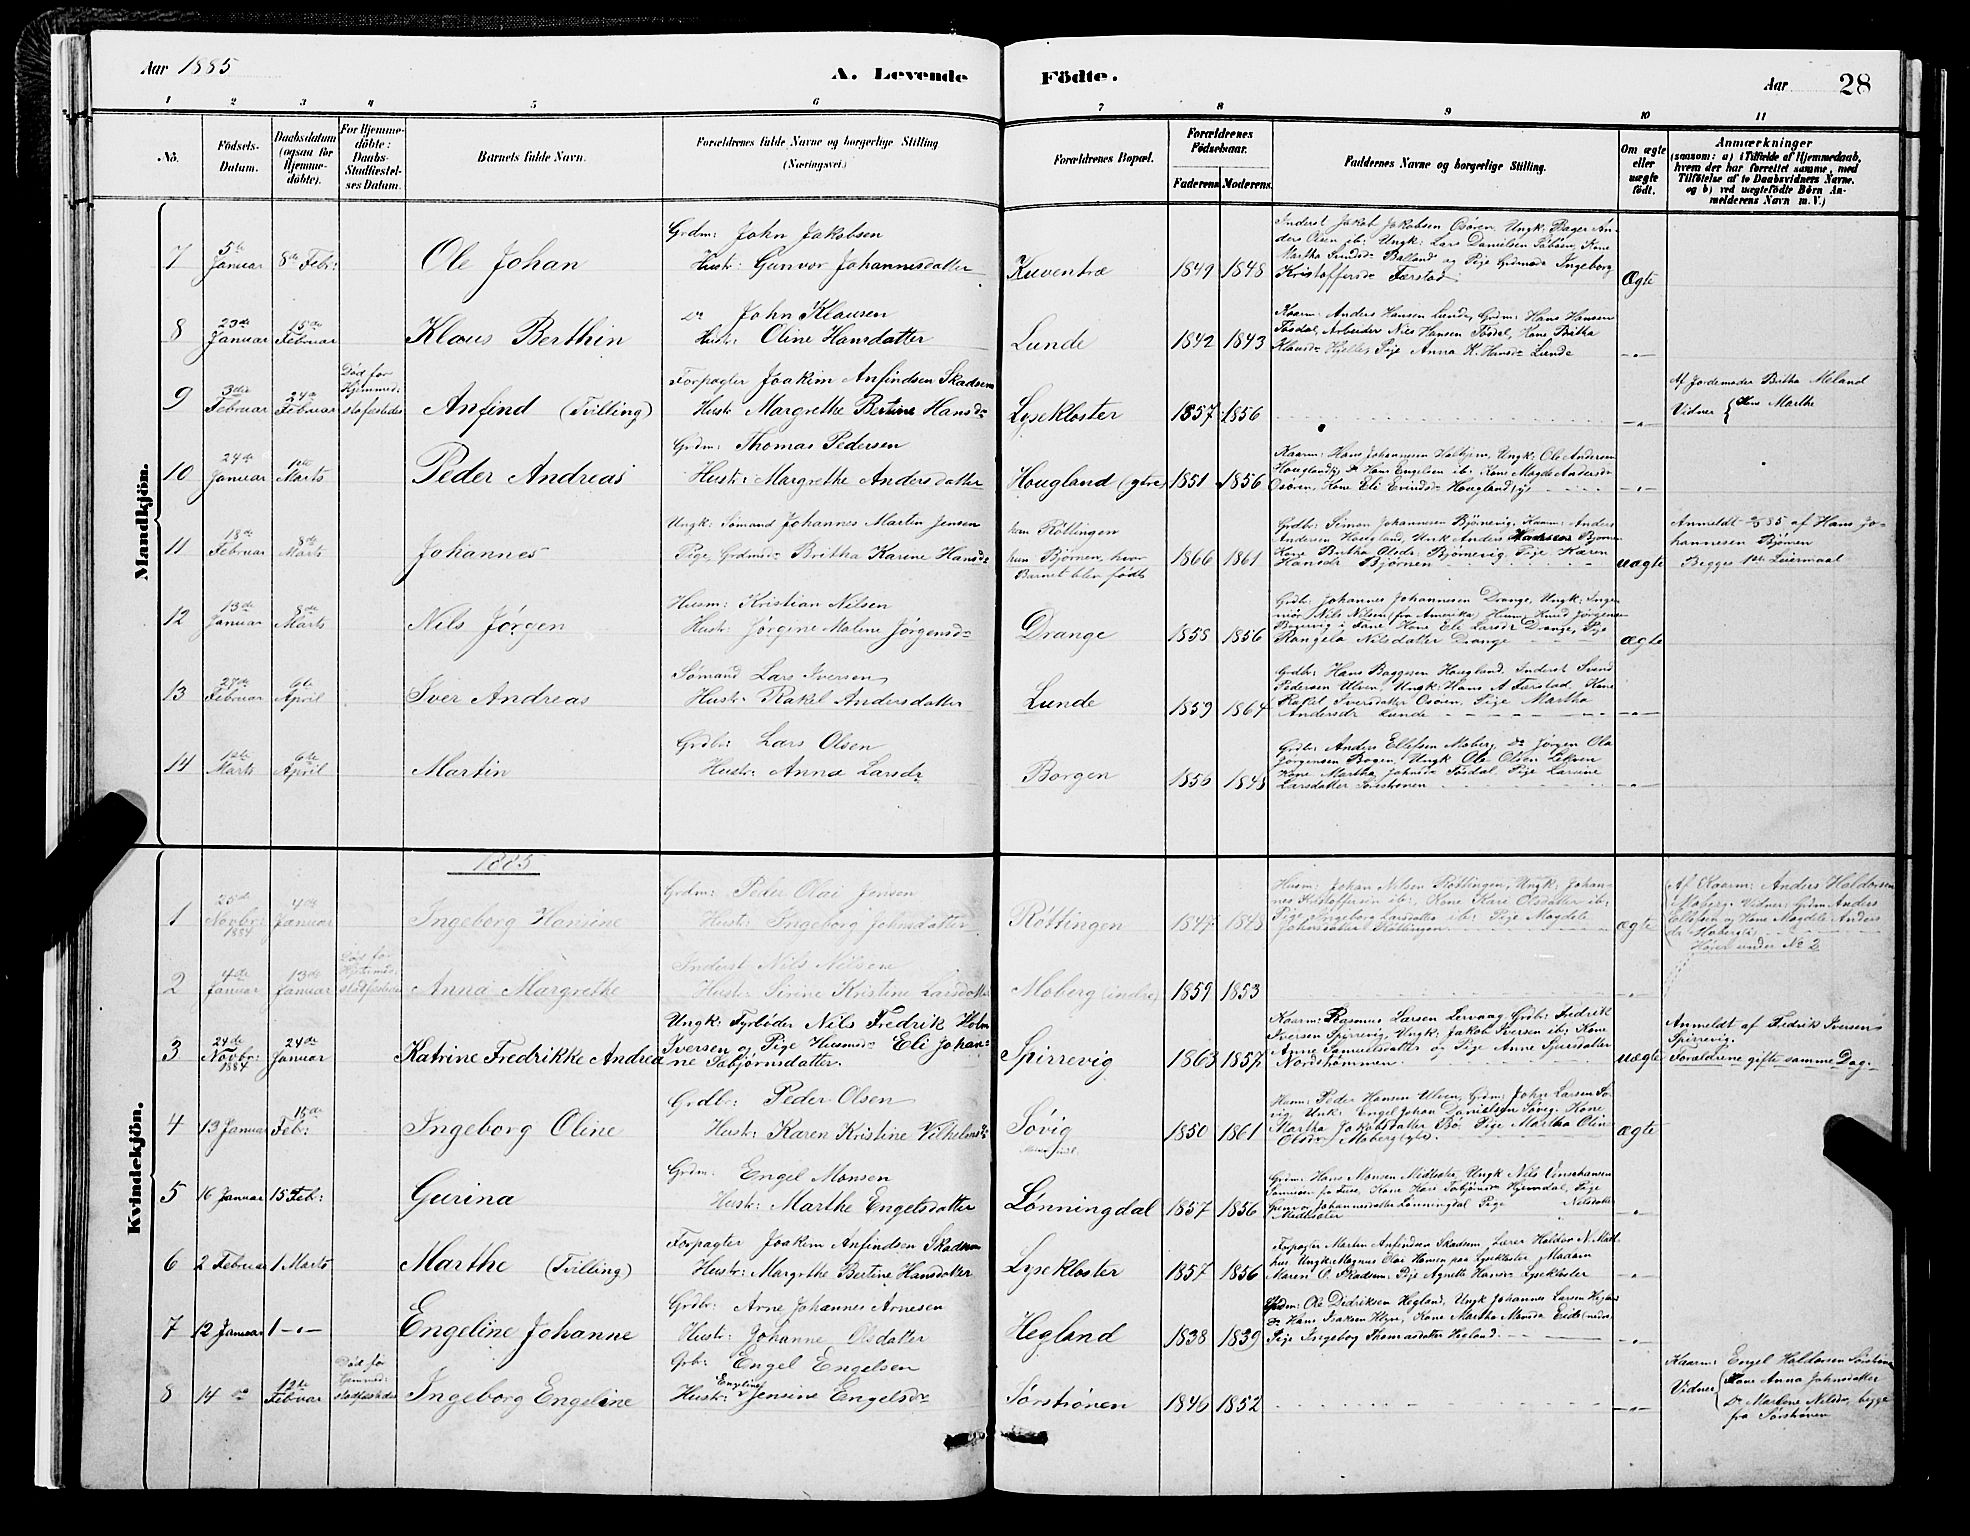 Aar 1885
A. Levende Födte.
Aar 28
1 2 3 4 5 6 7 8 9 10 11
No.
Födsels-Datum.
Daabsdatum (ogsaa for Hjemme-döbte).
For Hjemme-döbte: Daabs-Stadfæstel-ses Datum.
Barnets fulde Navn.
Forældrenes fulde Navne og borgerlige Stilling
(Næringsvei.)
Forældrenes Bopæl.
Forældrenes Födselsaar.
Faderens Moderens
Faddernes Navne og borgerlige Stilling.
Om ægte eller uægte födt.
Anmærkninger
(saasom: a) i Tilfælde af Hjemmedaab,
hvem der har forrettet samme, med
Tilföielse af to Daabsvidners Navne,
og b) ved uægtefödte Börn An-
melderens Navn m. V.)
Mandkjön.
7 5te Januar 8de Febr: Ole Johan
Grdm: John Jakobsen
Hustr: Gunvor Johannesdatter
Kuventræ 1849 1848
Inderst Jakob Jakobsen Osøren, Ungk: Bager An-
ders Olsen ib: Ungk: Lars Danielsen
Kone
Martha
og Pige Ingeborg
Kristoffersdr Færstad
Ægte
8 23de Januar 15de Februar Klaus Berthin
do John Klausen
Hustr: Oline Hansdatter
Lunde 1842 1843
Kaarm: Anders Hansen Lunde, Grdm: Hans Hansen
Tøsdal, Arbeider Nils Hansen Tøsdal, Kone Britha
Klausdr Hjelle, Pige Anna K. Hansdr Lunde
-"-
9 3die Februar 24de Februar
Død før
Hjemmed:
stafæstedes
Anfind (Tvilling)
Forpagter Joakim Anfindsen Skadsem
Hustr Margrethe Bertine Hansdr
Lysekloster 1857 1856
-"-
Af Jordemoder Britha Meland
Vidner { Kone Marthe
10 24de Januar 1ste Marts Peder Andreas
Grdm: Thomas Pedersen
Hustr: Margrethe Andersdatter
Hougland (ytre) 1851 1856
Kaarm: Hans Johannesen Holthjem, Ungk: Ole Andersen
Hougland, do Hans Engelsen ib: Kone Magde Andersdr
Osøren, Kone Eli Hougland,
-"-
11 18de Februar 8de Marts Johannes
Ungk: Sømand Johannes Martin Jensen
Pige, Grdmds Britha Karine Hansdr
ham Røttingen
hun Bjørnen, hvor
Barnet blev født
1866 1861
Grdbr: Simon Johannesen Bjørnevig, Kaarm: Anders
Andersen Hougland, Unk Anders Hansen Bjørnen
Kone Britha Olsdr: Bjørnevig Pige Karen
Hansdr Bjørnen
uægte
Anmeldt 85 af Hans Jo-
hannesen Bjørnen
Begges 1ste Leiermaal
12 13de Januar 8de Marts Nils Jørgen
Husm: Kristian Nilsen
Hustr: Jørgine Malene Jørgensdr
Drange 1858 1856
Grdbr: Johannes Johannesen Drange, Ungk: Inge-
niør Nils Nilsen (fra Amerika) Husm: Knud Jørgensen
i Fane, Kone Eli Larsdr Drange, Pige
Rangela Nilsdatter Drange
ægte
13 27de Februar 6te April Iver Andreas
Sømand Lars Iversen
Hustr: Rakel Andersdatter
Lunde 1859 1864
Grdbr: Hans Baggesen Hougland, Inderst Svend
Pedersen Ulven, Ungk: Hans A Færstad, Kone
Rakel Iversdatter Osøren, Pige Martha
Andersdr Lunde
-"-
14 1ste Marts 6te April Martin
Grdbr: Lars Olsen
Hustr: Anna Larsdr
Borgen 1856 1848
Grdbr: Anders Ellefsen Moberg, do Jørgen Ola
Jørgensen Bogen, Ungk Ole Olsen Lekven
Kone Martha Johnsdr Tøsdal, Pige Larine
Larsdatter Sørstrønen
-"-
Kvindekjön.
1885
1 25de Novbr: 1884 4de Januar Ingeborg Hansine
Grdm: Peder Olai Jensen
Hustr: Ingeborg Johnsdatter
Røttingen 1847 1848
Husm: Johan Nilsen Røttingen, Ungk: Johan-
nes Kristoffersen ib:, Kone Kari Olsdatter ib:
Pige Ingeborg Larsdatter ib: Pige Magdele
Johnsdatter Røttingen
ægte
Af Kaarm: Anders Haldorsen
Moberg. Vidner: Grdm Anders
Ellefsen og Kone Magdele Anders
dr Moberg
Hører under No 2
2 4de Januar 13de Januar
Død før
Hjemmed:
stadfæstedes
Anna Margrethe
Inderst Nils Nilsen
Hustr: Sirine Kristine Larsdatter
Moberg (indre) 1859 1853
-"-
3 24de Novbr: 1884 24de Januar Katrine Fredrikke Andrea
Ungk: Fyrbøder Nils Fredrik Holm
Iversen og Pige Husmds Eli Johan-
ne Tobjørnsdatter.
Spirrevig 1863 1857
Kaarm: Rasmus Larsen Lervaag Grdb: Fredrik
Iversen Spirrevig, Ungk: Jakob Iversen ib: Kone
Anne Samuelsdatter og Pige Anne Sjursdatter
Nordstrømmen.
uægte
Anmeldt af Fedrik Iversen
Spirrevig.
Forældrene gifte samme Dag.
4 13 Januar 15de Feb: Ingeborg Oline
Grdbr: Peder Olsen
Hustr: Karen Kristine Vilhelmsdr
Søvig 1850 1861
Husm: Peder Hansen Ulven, Grdm: John Larsen Sø-
vig, Unk: Engel Johan Danielsen Søvig, Kone
Martha Jakobsdatter Bø Pige Martha Olin
Olsdr Moberg (ytre).
ægte
5 16 Januar 15 Feb: Gurina
Grdm: Engel Monsen
Hustr: Marthe Engelsdatter
Lønningdal 1857 1856
Grdm: Hans Monsen Midtsæter, Ungk Nils
fra Fuse, Kone Kari Tobjørnsdr Hjemdal, Pige
Gunvor Johannesdatter Lønningdal Pige Nilsdatter
Midtsæter
-"-
6 2 Februar 1 Marts Marthe (Tvilling)
Forpagter Joakim Anfindsen Skadsem
Hustr: Margrethe Bertine Hansdatter
Lysekloster 1857 1856
Forpagter Marten Anfindsen Skadsem, Lærer Haldor N. Midt-
hus Ungk: Magnus Olai Hansen paa Lysekloster, Madam
Maren O. Skadsem, Pige Agnette Hansdr Lysekloster
-"-
7 12 Januar 1 -"- Engeline Johanne
Grdbr: Arne Johannes Arnesen
Hustr: Johanne Olsdatter
Hegland 1838 1839
Grdm: Ole Didriksen Hegland, Ungk Johannes Larsen Hegland
do Hans Isaksen Klyve, Kone Martha Monsdr Eide (nedre)
Pige Ingeborg Thomasdatter Hegland.
-"-
8 14 do 19de Februar
Død før
Hjemmed:
stadfæstedes
Ingeborg Engeline
Grb: Engel Engelsen
Hustr: Engeline Jensine Engelsdr
Sørstrønen 1846 1852
-"-
Kaarm: Engel Haldorsen Sørstrønen
Vidner { Kone Anna Johnsdatter
do Marlene Nilsdr, begge
fra Sørstrønen